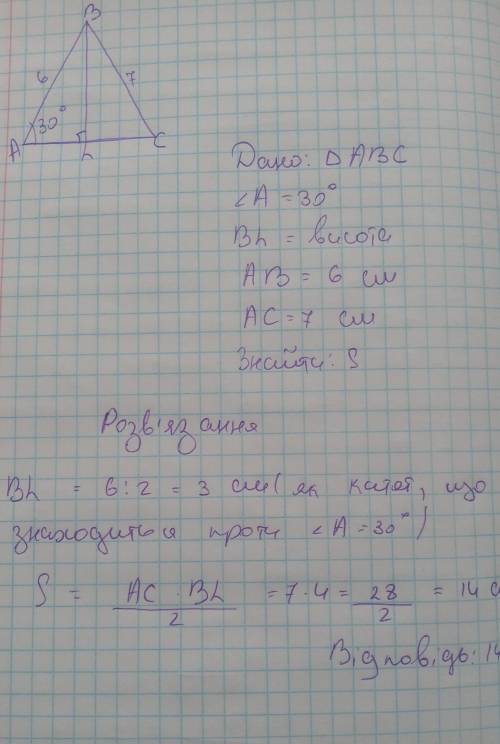 B
6
7
30°
A
h
C
Дано: △ABC
∠A = 30°
Bh = висота
AB = 6 см
AC = 7 см
Знайти: S
Розв'язання
Bh = 6:2 = 3 см( як катет, що
знаходиться проти ∠A = 30°)
S = AC · Bh / 2 = 7·4 = 28 / 2 = 14 с
Відповідь: 14